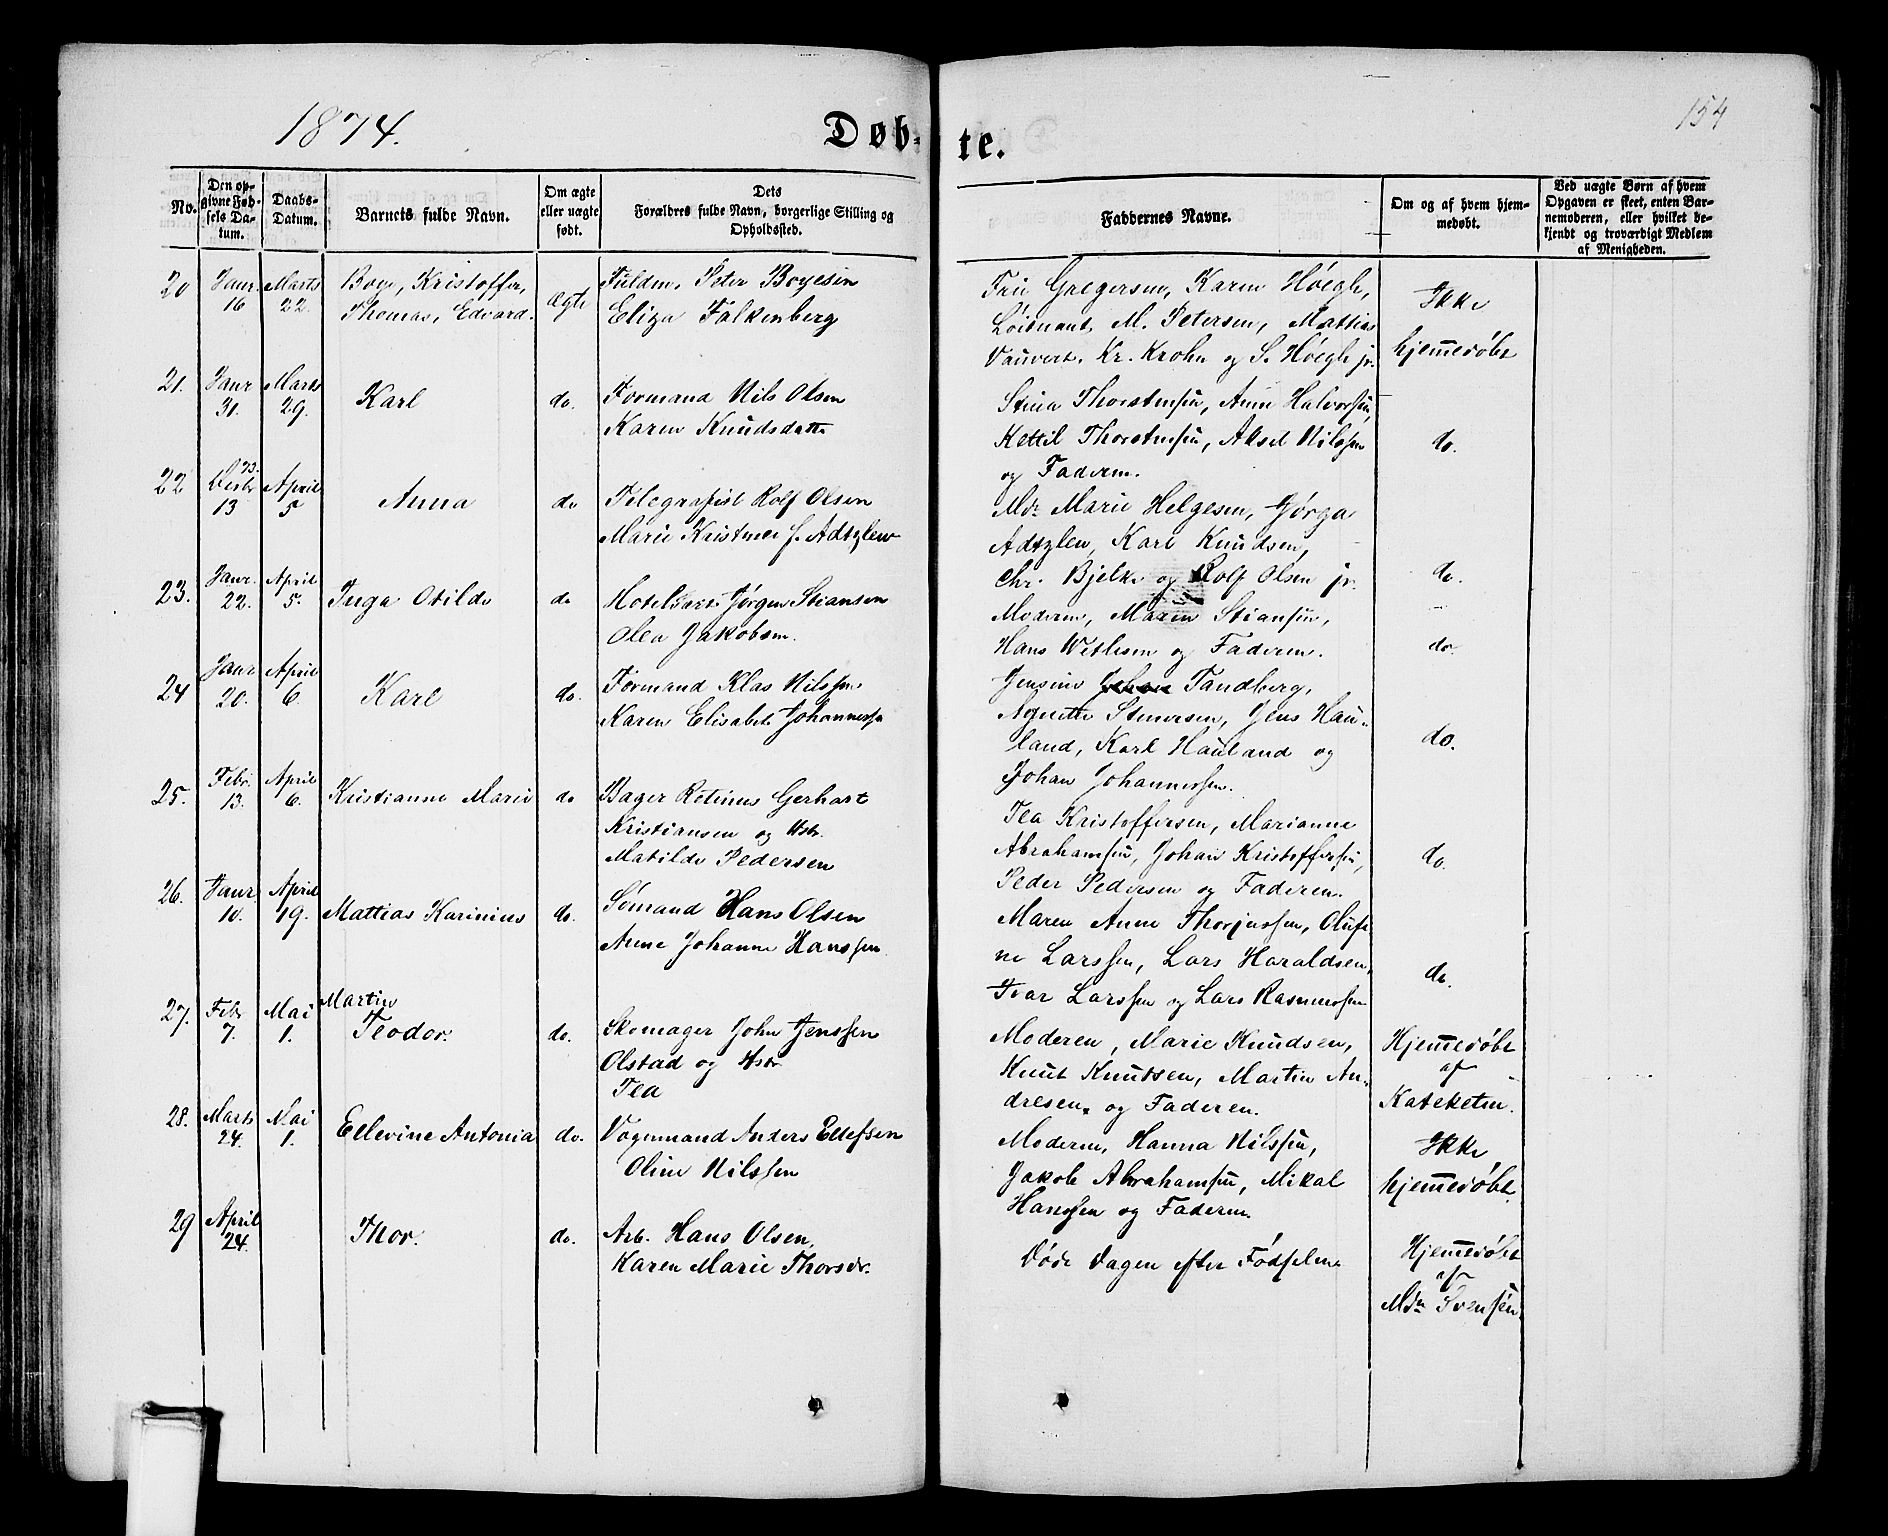 1874.
Døb-
te.
154
No.
Den op-
givne Fød-
sels Da-
tum.
Daabs-
Datum.
Barnets fulde Navn.
Om ægte
eller uægte
født.
Dets
Forældres fulde Navn, borgerlige Stilling og
Opholdssted.
Faddernes Navne.
Om og af hvem hjem-
medøbt.
Ved uægte Børn af hvem
Opgaven er skeet, enten Bar-
nemoderen, eller hvilket be-
kjendt og troværdigt Medlem
af Menigheden.
20
Janr.
16
Marts
22.
Boye, Kristoffer,
Thomas, Edvard.
Ægte
Fuldm. Peter Boyesen
Eliza Falkenberg
Fru Gregersen, Karen Høegh,
Løitnant M. Petersen, Mattias
Vauvert, Kr. Krohn og S. Høegh jr.
Ikke
hjemmedøbt
21.
Janr
31.
Marts
29.
Karl
do.
Formand Nils Olsen
Karen Knudsdatte
Stina Thorstensen, Anne Halvorsen,
Kettil Thorstensen, Aksel Nilssen
og Faderen.
do.
22
73.
Desbr
13
April
5
Anna
do
Telegrafist Rolf Olsen
Marie Kristine f. Adtzlew
Mdm Marie Helgesen, Gjørga
Adtzlew, Karl Knudsen,
Chr. Bjelke og Rolf Olsen jr.
do.
23.
Janr.
22.
April
5.
Inga Otilde
do
Hotelvært Jørgen Stiansen
Olea Jakobsen.
Moderen, Maren Stiansen,
Hans Wethesen og Faderen.
do.
24
Janr
20.
April
6.
Karl
do.
Formand Klas Nilssen
Karen Elisabet Johannessen
Jensine Tandberg,
Agnethe Stenersen, Jens Hau-
land, Karl Hauland og
Johan Johannessen.
do.
25.
Febr.
13.
April
6.
Kristianne Marie
do
Bager Retinus Gerhart
Kristiansen og Hstr.
Matilde Pedersen
Tea Kristoffersen, Marianne
Abrahamsen, Johan Kristoffersen,
Peder Pedersen og Faderen.
do.
26.
Janr.
10.
April
19.
Mattias Karinius
do.
Sømand Hans Olsen
Anne Johanne Hanssen
Maren Anne Thorjussen, Olufi
ne Larssen, Lars Haraldsen,
Ivar Larssen og Lars Rasmussen
do.
27.
Febr
7.
Mai
1.
Martin
Teodor.
do.
Skomager John Jenssen
Olstad og Hstr
Tea
Moderen, Marie Knudsen,
Knut Knutsen, Martin An-
dresen og Faderen.
Hjemmedøbt
af
Kateketen.
28.
Marts
24.
Mai
1.
Ellevine Antonia
do.
Vognmand Anders Ellefsen
Oline Nilssen
Moderen, Hanna Nilssen,
Jakob Abrahamsen, Mikal
Hanssen og Faderen.
Ikke
hjemmedøbt
29
April
24.
Thor.
do.
Arb. Hans Olsen,
Karen Marie Thorsdr.
Døde Dagen efter Fødselen
Hjemmedøbt
af
Mdm Svensen.